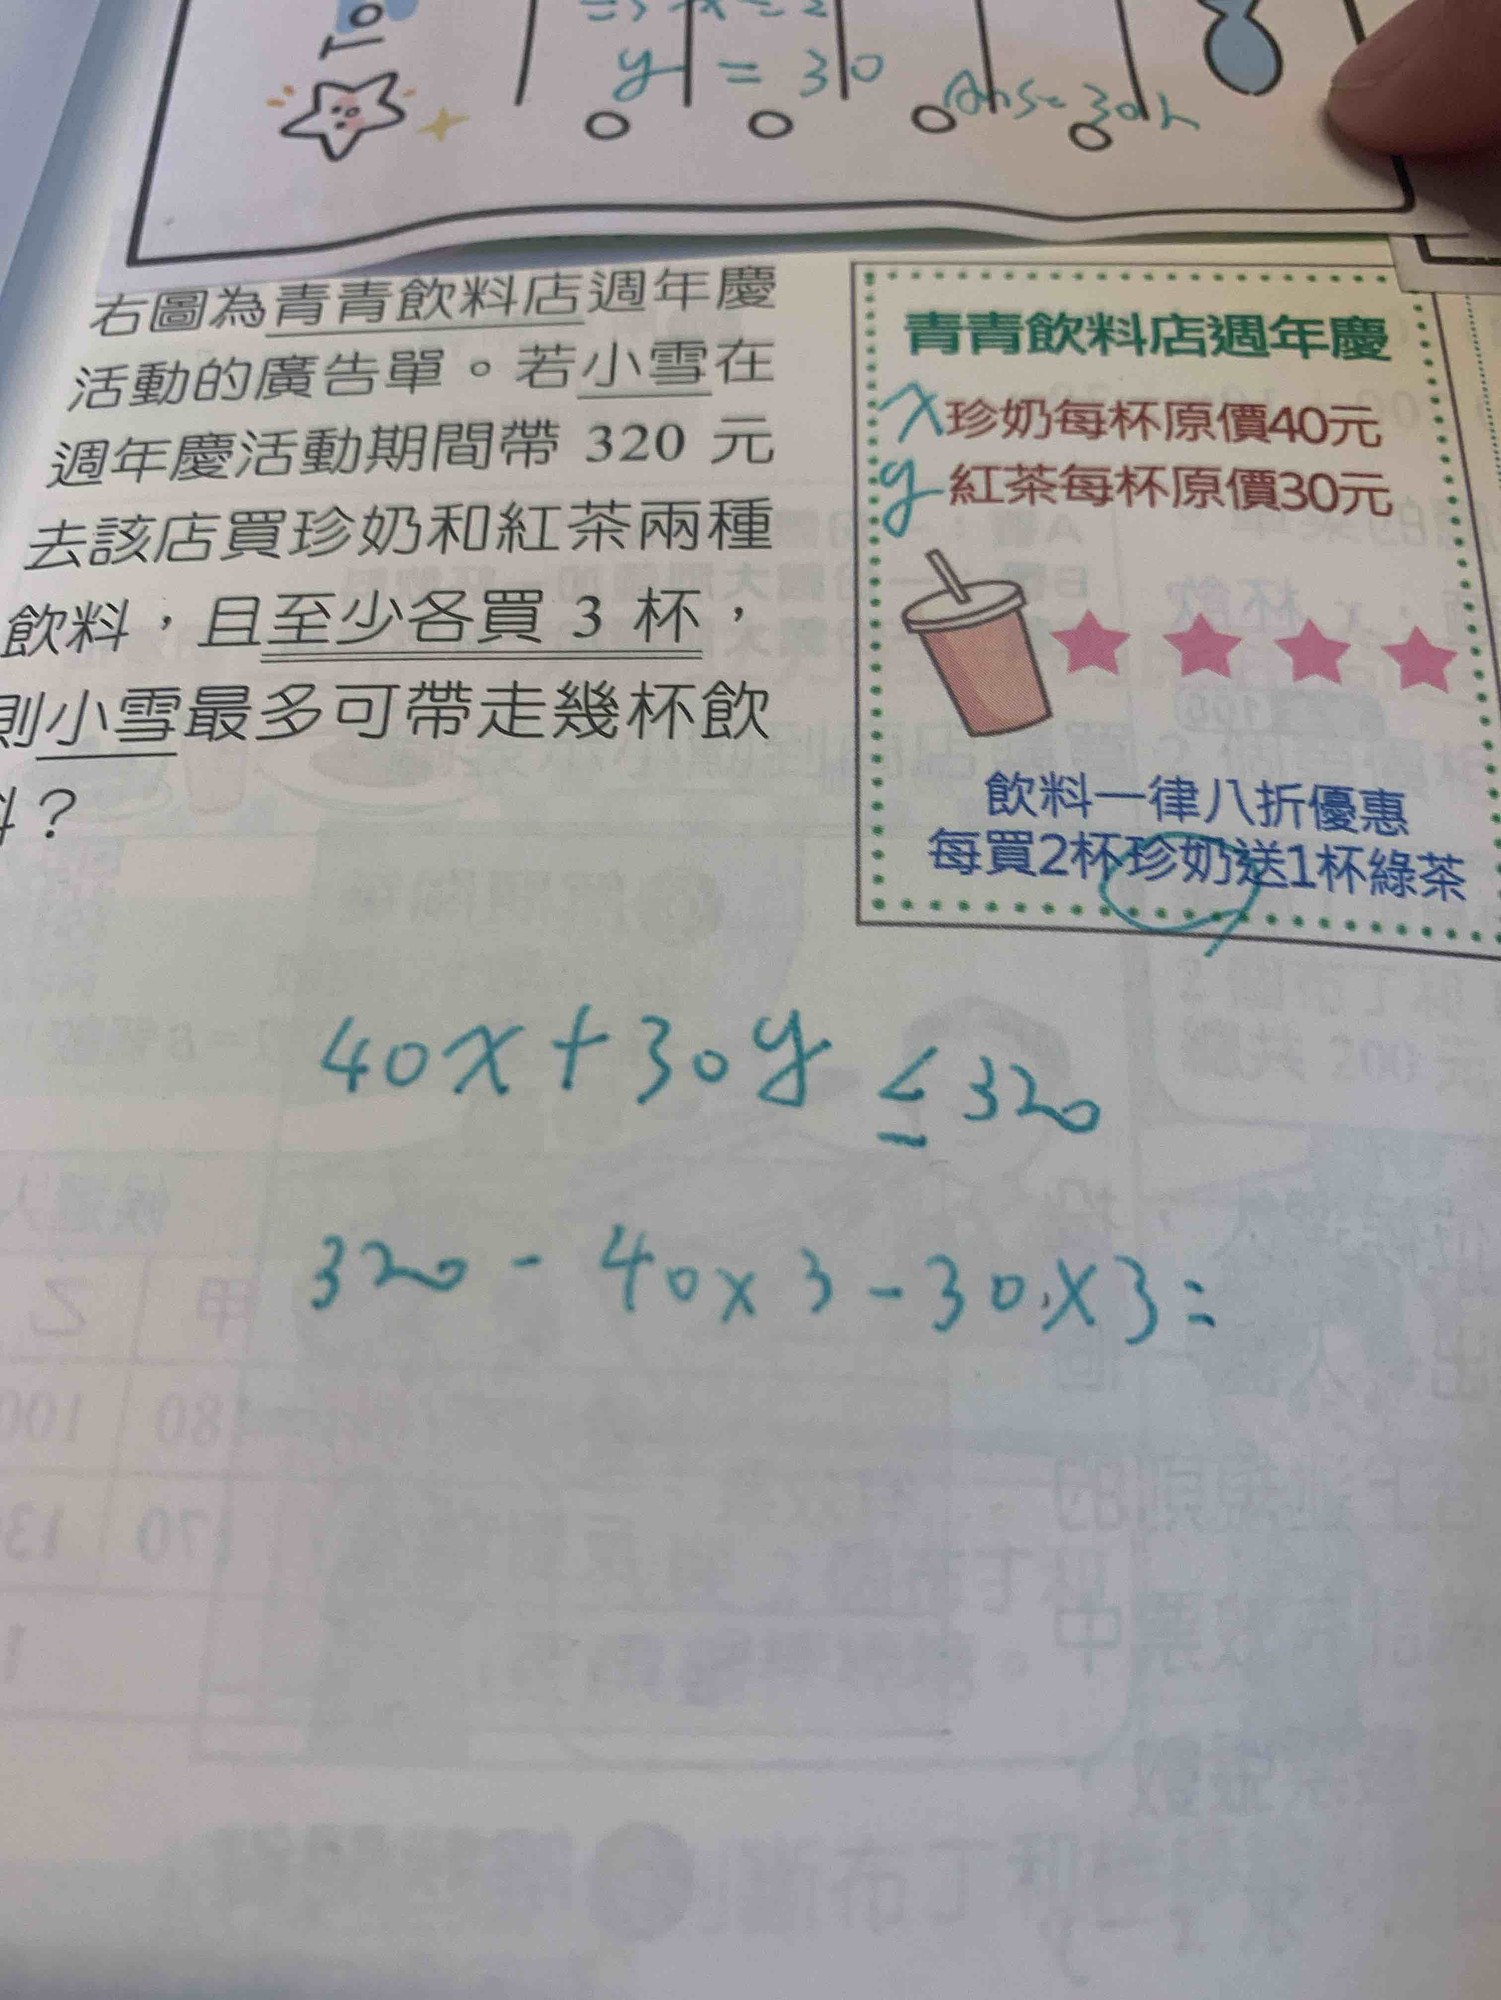 To
y = 30
Ans=30k
右圖為青青飲料店週年慶
活動的廣告單。若小雪在
週年慶活動期間帶 320 元
去該店買珍奶和紅茶兩種
飲料，且至少各買 3 杯，
則小雪最多可帶走幾杯飲
料？
青青飲料店週年慶
x 珍奶每杯原價40元
y 紅茶每杯原價30元
飲料一律八折優惠
每買2杯珍奶送1杯綠茶
40x+30y ≤ 320
320 - 40x3 - 30x3 =